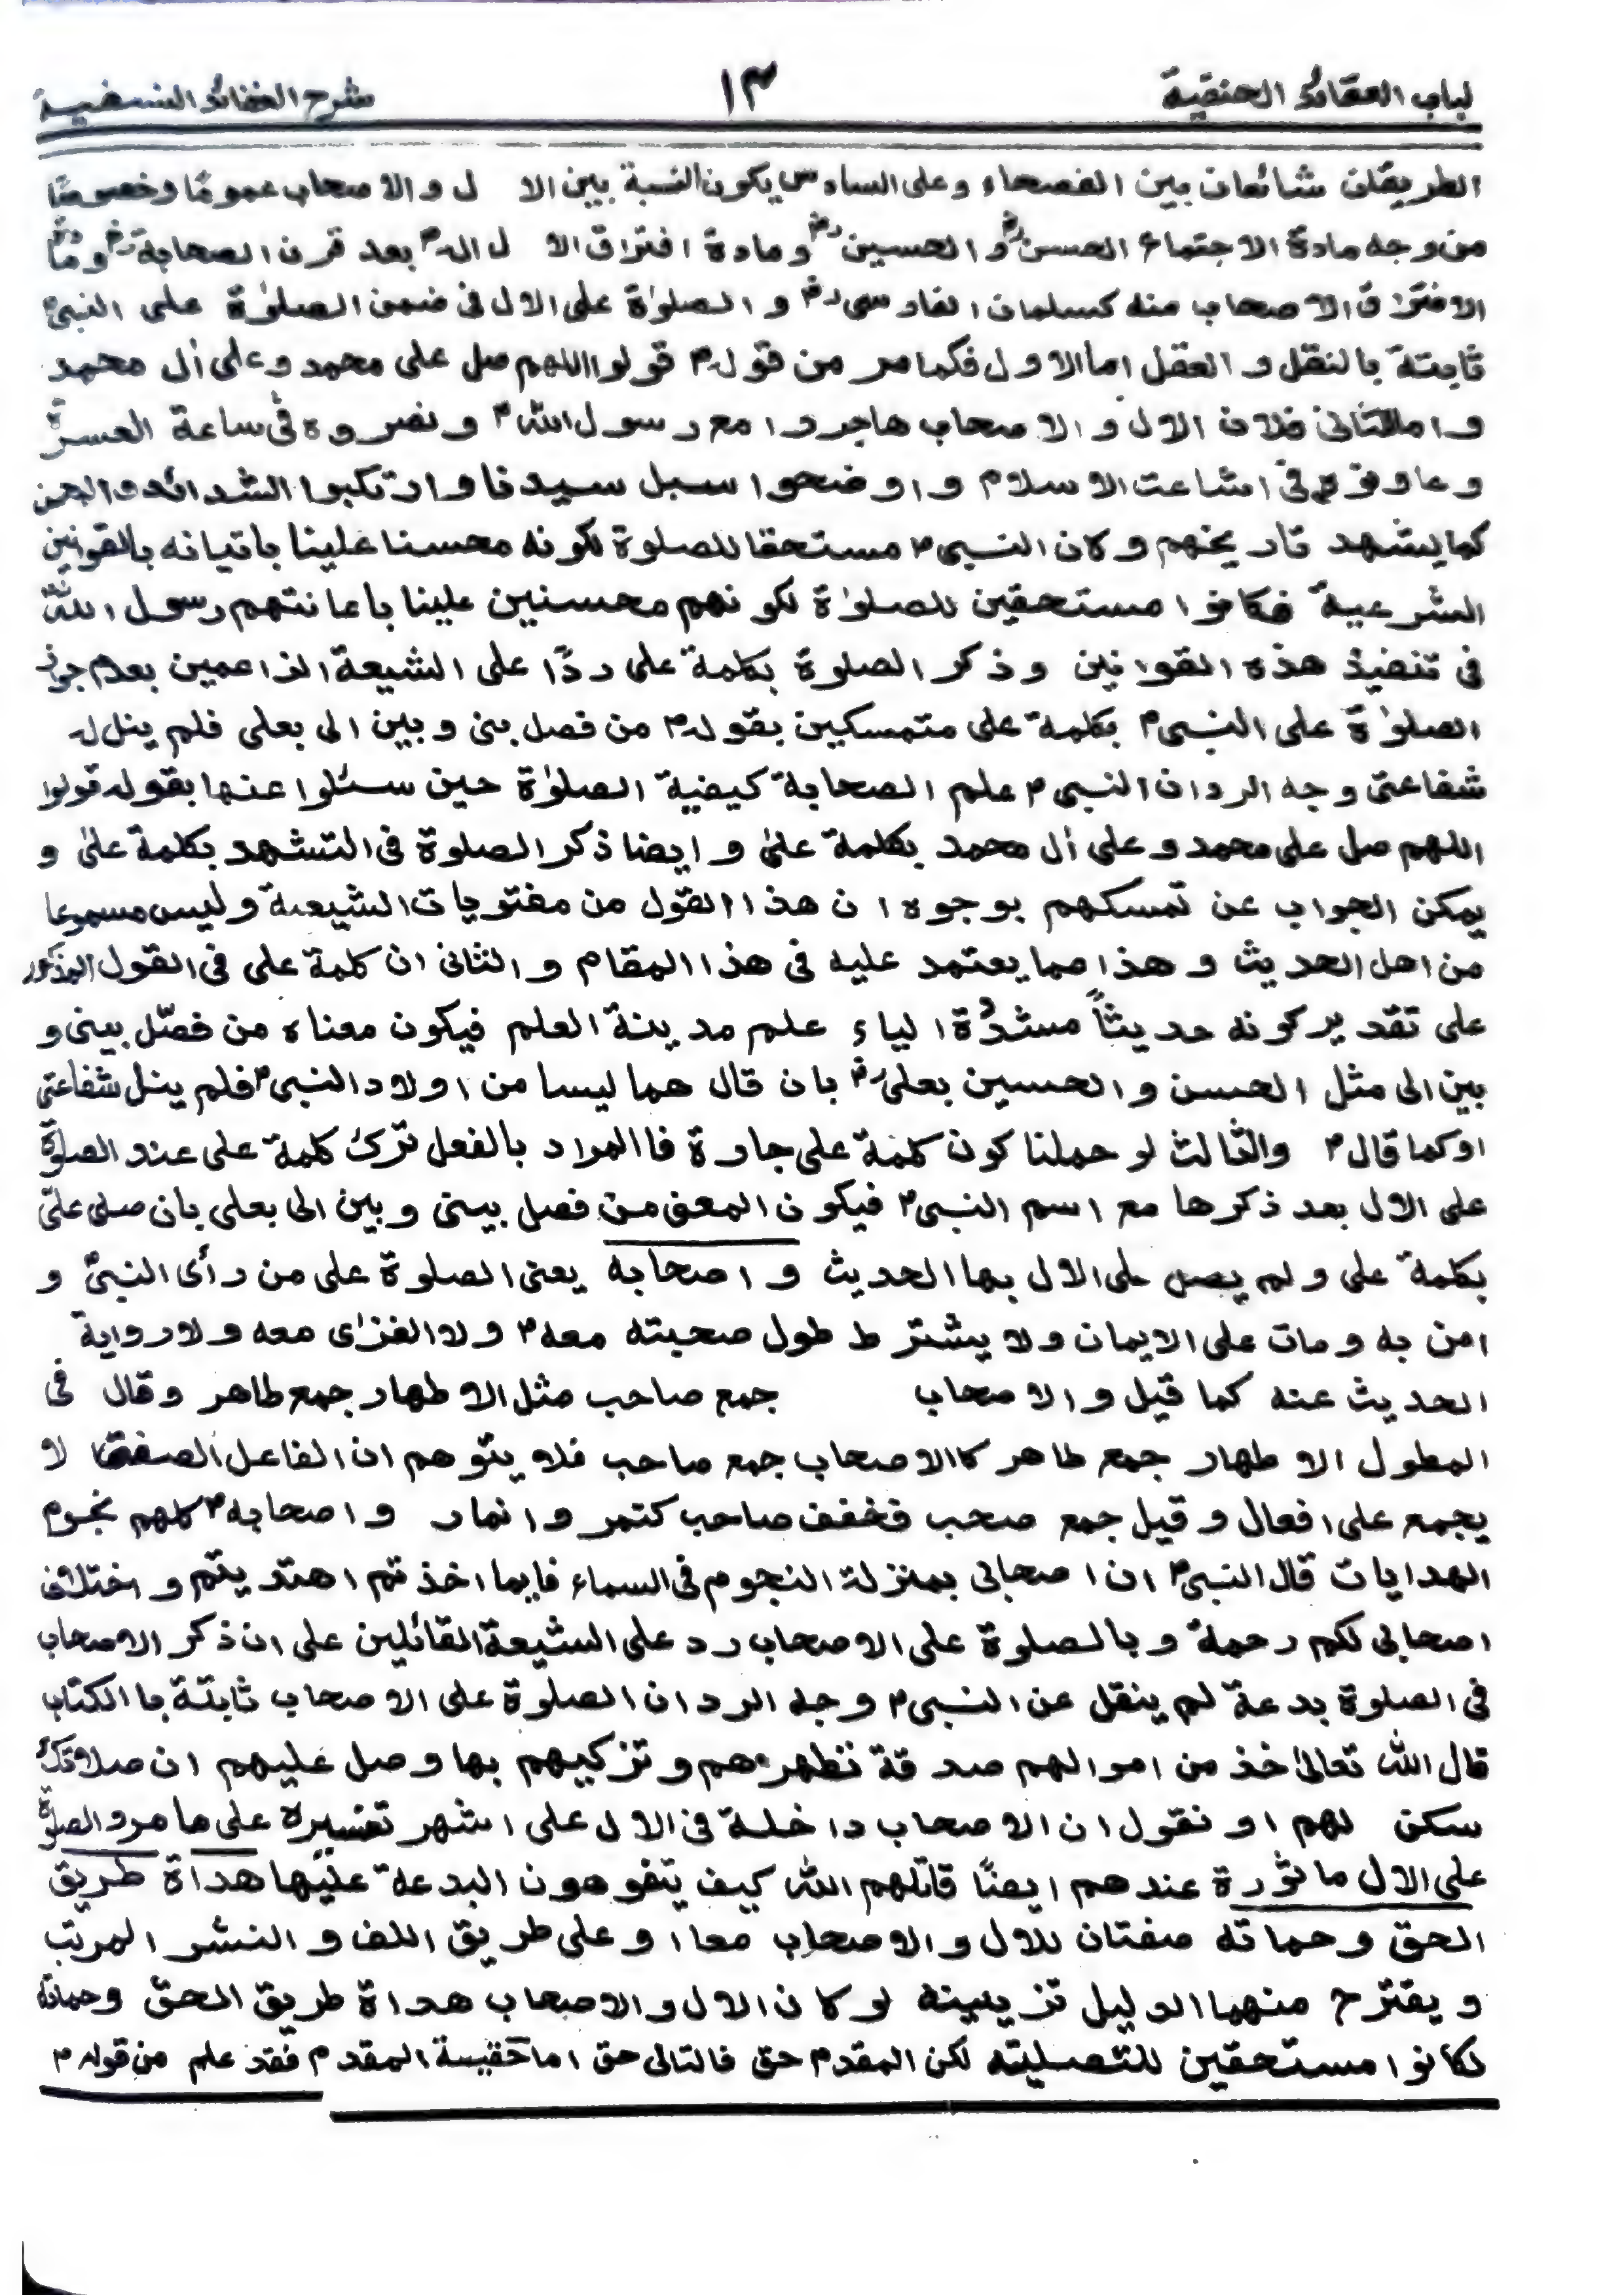 لباب العقائد الحنفية ١٣ شرح العقائد النسفية
الطريقان شائعان بين الفصحاء وعلى السادس يكون النسبة بين الاٰل والاصحاب عمومًا وخصوصًا
من وجه مادة الاجتماع الحسنؓ والحسينؓ ومادة افتراق الاٰل الہؐ بعد قرن الصحابةؓ ومادة
الافتراق الاصحاب منه كسلمان الفارسیؓ والصلوٰة على الاٰل فی ضمن الصلوٰة علی النبیؐ
ثابتة بالنقل والعقل اما الاول فكما مر من قولهؐ قولوا اللهم صل علی محمد وعلی اٰل محمد
واما الثانی فلان الاٰل والاصحاب هاجروا مع رسول اللهؐ ونصروه فی ساعة العسرة
وعاونوهم فی اشاعت الاسلام واوضحوا سبل سيدنا وارتكبوا الشدائد والمحن
كما يشهد تاريخهم وكان النبیؐ مستحقا للصلوة لكونه محسنا علينا باتيانه بالقونين
الشرعية فكانوا مستحقين للصلوٰة لكونهم محسنين علينا باعانتهم رسول اللهؐ
فی تنفيذ هذه القوانين وذكر الصلوة بكلمة علی ردًا علی الشيعة الزاعمين بعدم جواز
الصلوٰة علی النبیؐ بكلمة علی متمسكين بقولهؐ من فصل بنی وبين اٰلی بعلی فلم ينل له
شفاعتی وجه الرد ان النبیؐ علم الصحابة كيفية الصلوٰة حين سئلوا عنها بقوله قولوا
اللهم صل علی محمد وعلی اٰل محمد بكلمة علیٰ وايضا ذكر الصلوة فی التشهد بكلمة علیٰ و
يمكن الجواب عن تمسكهم بوجوه ان هذا القول من مفتريات الشيعة وليس مسموعا
من اهل الحديث وهذا مما يعتمد عليه فی هذا المقام والثانی ان كلمة علی فی القول المذكور
علی تقدير كونه حديثاً مشدّدة الياء علم مدينة العلم فيكون معناه من فصّل بينی و
بين اٰلی مثل الحسن والحسين بعلیؓ بان قال هما ليسا من اولاد النبیؐ فلم ينل شفاعتی
اوكما قالؐ والثالث لو حملنا كون كلمة علی جارة فاالمراد بالفعل ترك كلمة علی عند الصلوٰة
علی الاٰل بعد ذكرها مع اسم النبیؐ فيكون المعنی من فصل بينی وبين اٰلی بعلی بان صلی علیّ
بكلمة علی ولم يصل علی الاٰل بها الحديث واصحابه يعنی الصلوة علی من رأی النبیؐ و
اٰمن به ومات علی الايمان ولا يشترط طول صحبته معهؐ ولا الغزٰی معه ولا رواية
الحديث عنه كما قيل والاصحاب جمع صاحب مثل الاطهار جمع طاهر وقال فی
المطول الاطهار جمع طاهر كالاصحاب جمع صاحب فلا يتوهم ان الفاعل الصفتی لا
يجمع علی افعال وقيل جمع صحب فخفف صاحب كتمر وانمار واصحابهؐ كلهم نجوم
الهدايات قال النبیؐ ان اصحابی بمنزلة النجوم فی السماء فايما اخذتم اهتديتم واختلاف
اصحابی لكم رحمة وبالصلوة علی الاصحاب رد علی الشيعة القائلين علی ان ذكر الاصحاب
فی الصلوة بدعة لم ينقل عن النبیؐ وجه الرد ان الصلوٰة علی الاصحاب ثابتة باالكتاب
قال الله تعالیٰ خذ من اموالهم صدقة تطهرهم وتزكيهم بها وصل عليهم ان صلاوتك
سكن لهم او نقول ان الاصحاب داخلة فی الاٰل علی اشهر تفسيره علی ما مر والصلوٰة
علی الاٰل ماثورة عندهم ايضًا قاتلهم الله كيف يتفوهون البدعة عليها هداة طريق
الحق وحماته صفتان للاٰل والاصحاب معا او علی طريق اللف والنشر المرتب
ويقترح منهما الدليل تزيينه لو كان الاٰل والاصحاب هداة طريق الحق وحماته
لكانوا مستحقين للتصليته لكن المقدم حق فالتالی حق اما حقيسة المقدم فقد علم من قولهؐ